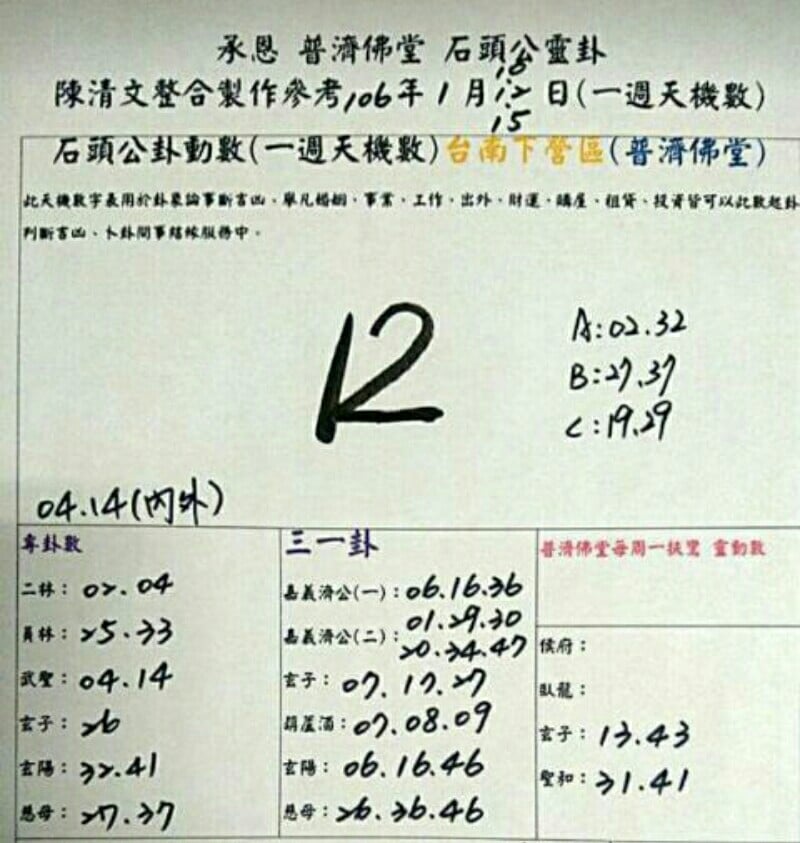 承恩 普濟佛堂 石頭公靈卦
陳清文整合製作參考106年1月10.12.15日(一週天機數)
石頭公卦動數(一週天機數)台南下營區(普濟佛堂)
此天機數字義用於卦象論事斷吉凶、舉凡婚姻、事業、工作、出外、財運、購屋、租貸、投資皆可以此數起卦
判斷吉凶、卜卦問事結緣服務中。
12
A:02.32
B:27.37
C:19.29
04.14(內外)
專卦數
二林:02.04
員林:25.33
武聖:04.14
玄子:26
玄陽:32.41
慈母:27.37
三一卦
嘉義濟公(一):06.16.36
嘉義濟公(二):01.29.30
20.34.47
玄子:07.17.27
葫蘆酒:07.08.09
玄陽:06.16.46
慈母:26.36.46
普濟佛堂每周一扶鸞 靈動數
侯府:
臥龍:
玄子:13.43
聖和:31.41